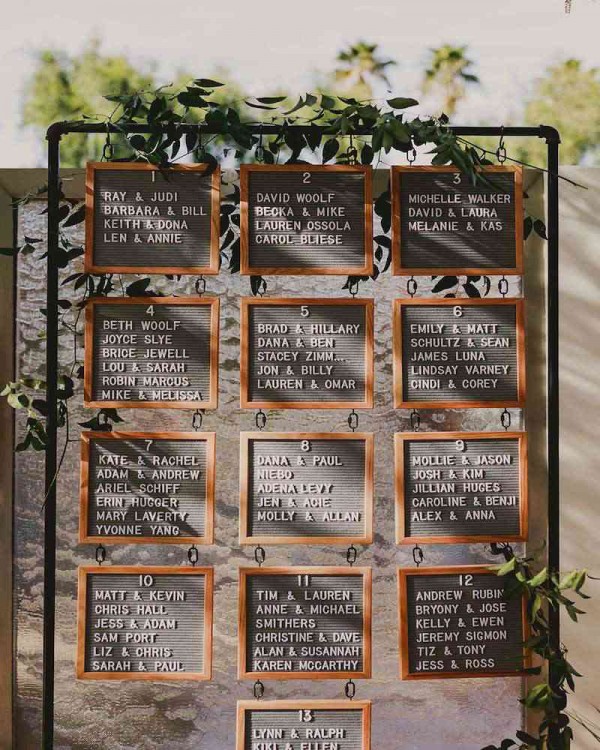 1
RAY & JUDI
BARBARA & BILL
KEITH & DONA
LEN & ANNIE
2
DAVID WOOLF
BECKA & MIKE
LAUREN OSSOLA
CAROL BLIESE
3
MICHELLE WALKER
DAVID & LAURA
MELANIE & KAS
4
BETH WOOLF
JOYCE SLYE
BRICE JEWELL
LOU & SARAH
ROBIN MARCUS
MIKE & MELISSA
5
BRAD & HILLARY
DANA & BEN
STACEY ZIMM...
JON & BILLY
LAUREN & OMAR
6
EMILY & MATT
SCHULTZ & SEAN
JAMES LUNA
LINDSAY VARNEY
CINDI & COREY
7
KATE & RACHEL
ADAM & ANDREW
ARIEL SCHIFF
ERIN HUGGER
MARY LAVERTY
YVONNE YANG
8
DANA & PAUL
NIEBO
ADENA LEVY
JEN & ACIE
MOLLY & ALLAN
9
MOLLIE & JASON
JOSH & KIM
JILLIAN HUGES
CAROLINE & BENJI
ALEX & ANNA
10
MATT & KEVIN
CHRIS HALL
JESS & ADAM
SAM PORT
LIZ & CHRIS
SARAH & PAUL
11
TIM & LAUREN
ANNE & MICHAEL
SMITHERS
CHRISTINE & DAVE
ALAN & SUSANNAH
KAREN MCCARTHY
12
ANDREW RUBIN
BRYONY & JOSE
KELLY & EWEN
JEREMY SIGMON
TIZ & TONY
JESS & ROSS
13
LYNN & RALPH
KIKI & ELLEN